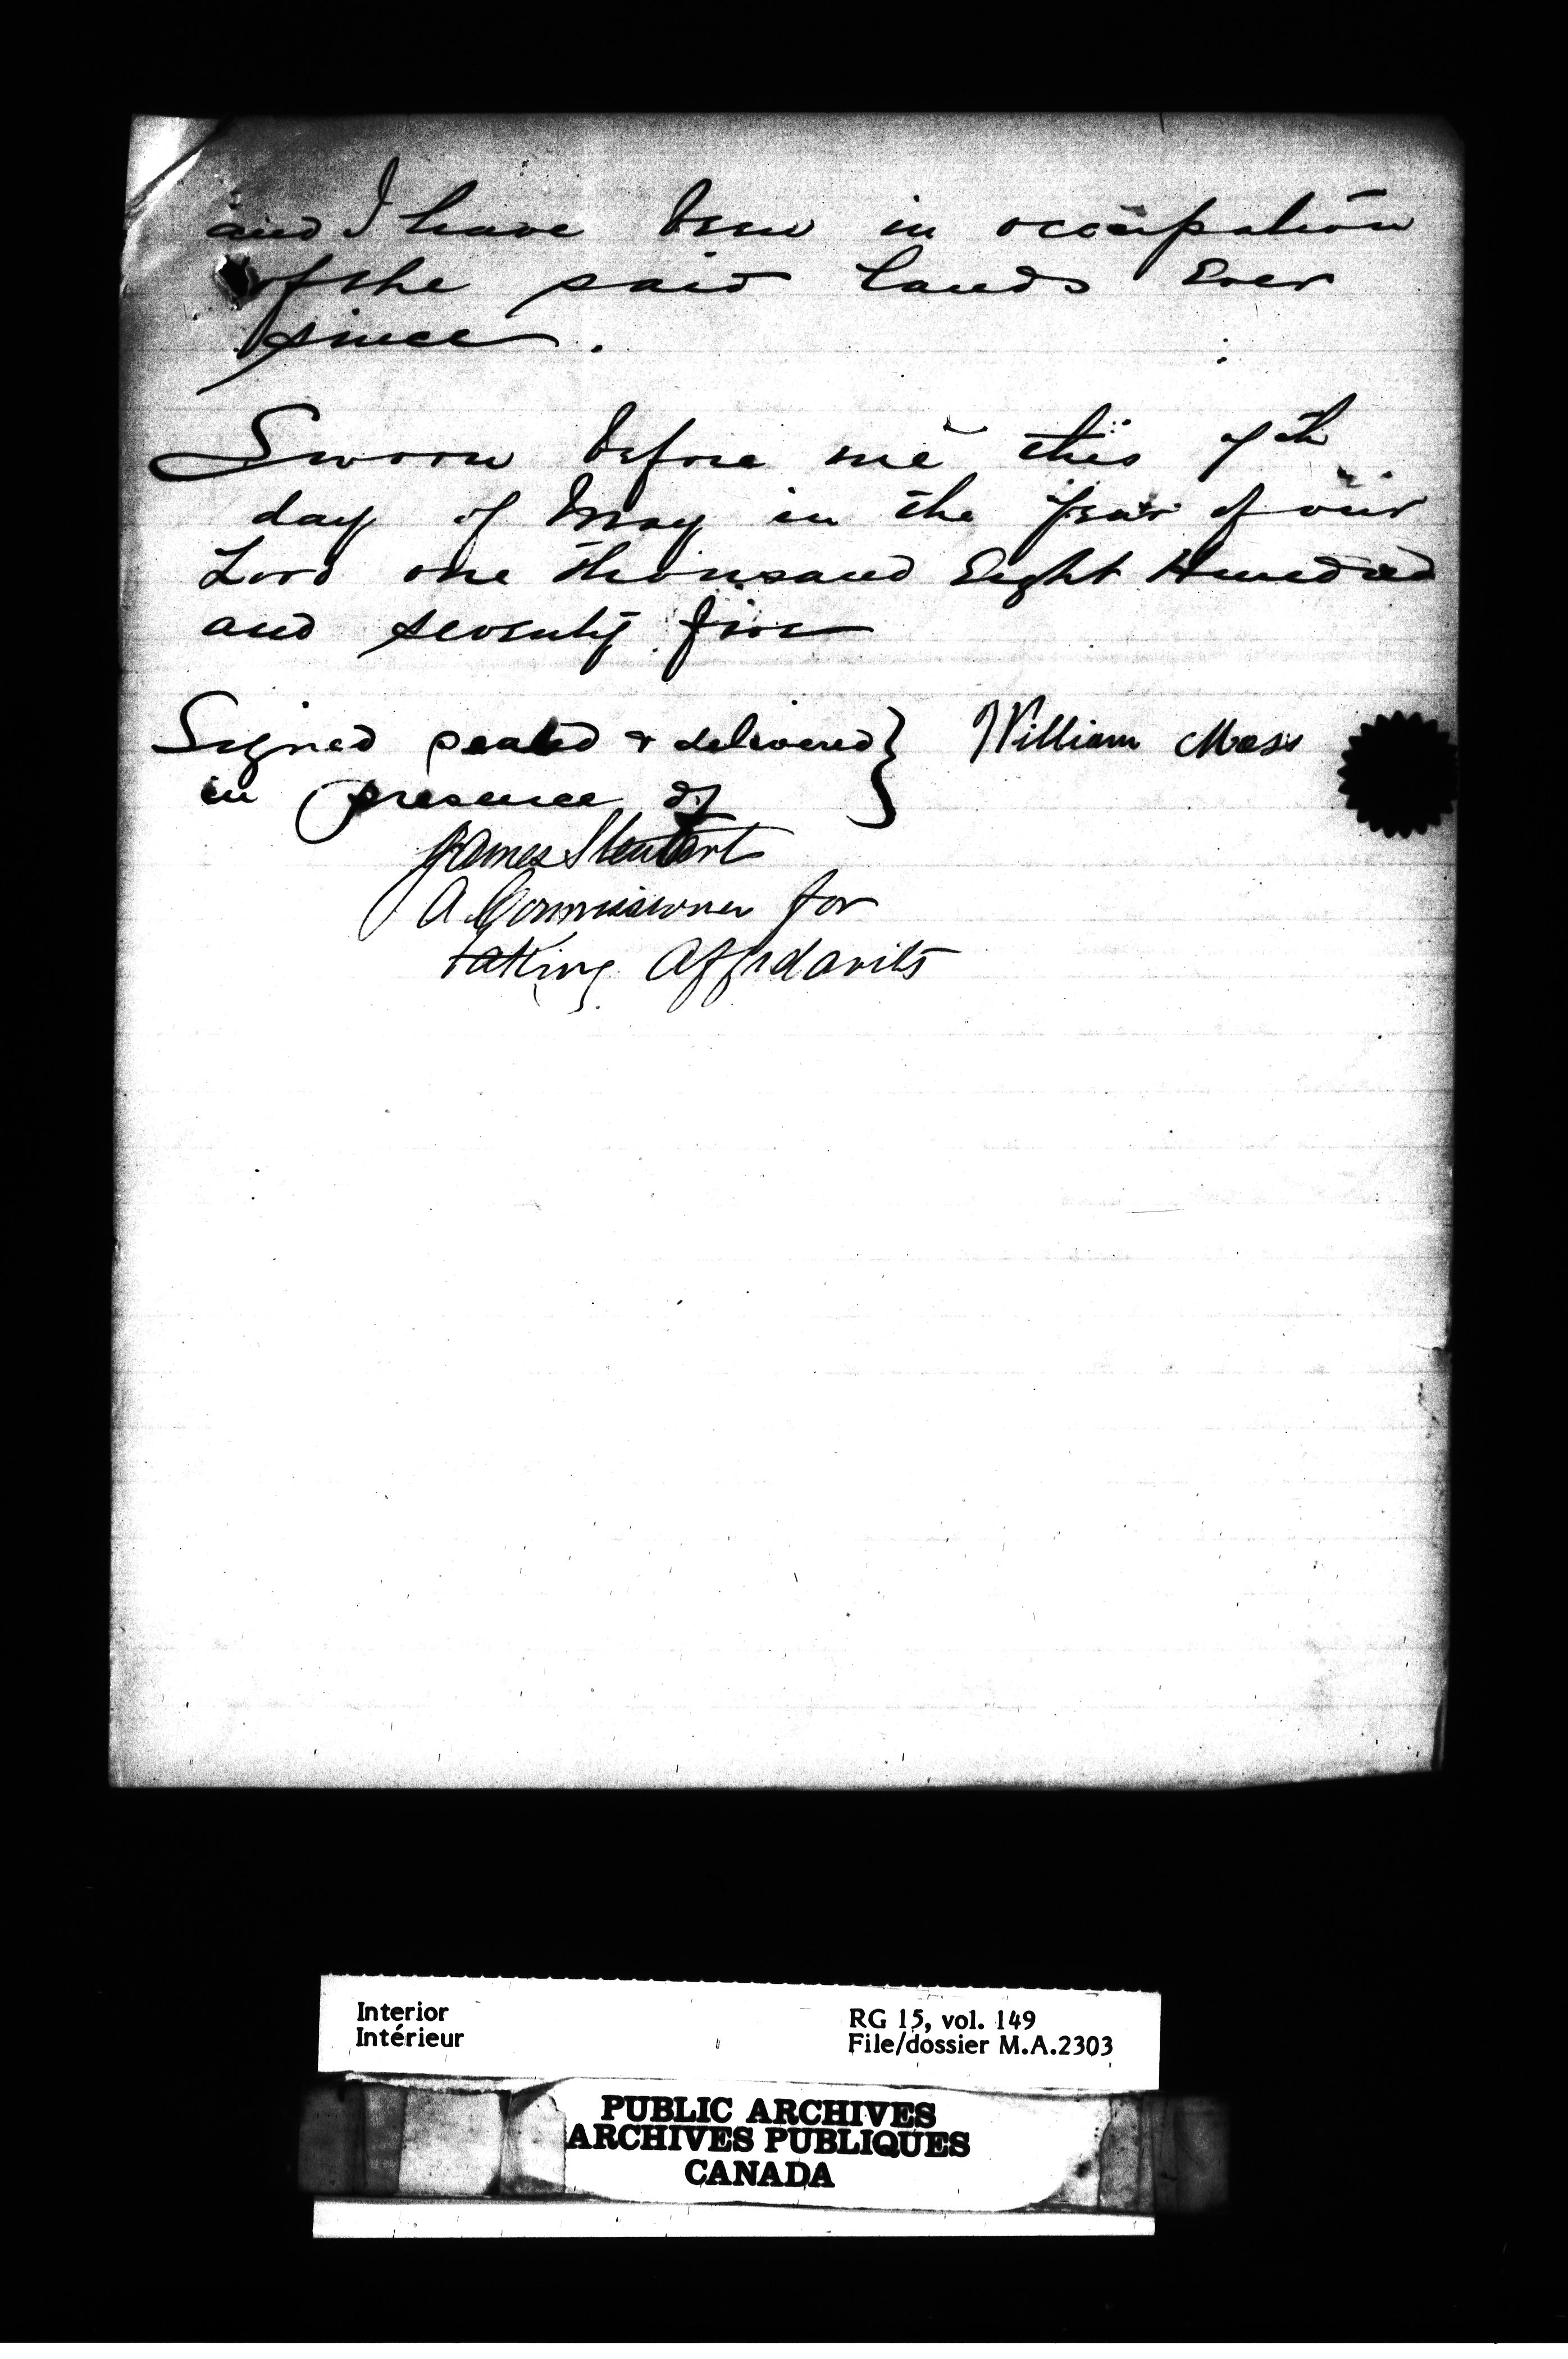 and I have been in occupation
of the said lands Ever
since.
Sworn before me this 7th
day of May in the Year of our
Lord one thousand Eight Hundred
and seventy five
Signed sealed & delivered } William Moss
in presence of
James Stewart
A Commissioner for
taking Affidavits
Interior
Intérieur
RG 15, vol. 149
File/dossier M.A.2303
PUBLIC ARCHIVES
ARCHIVES PUBLIQUES
CANADA